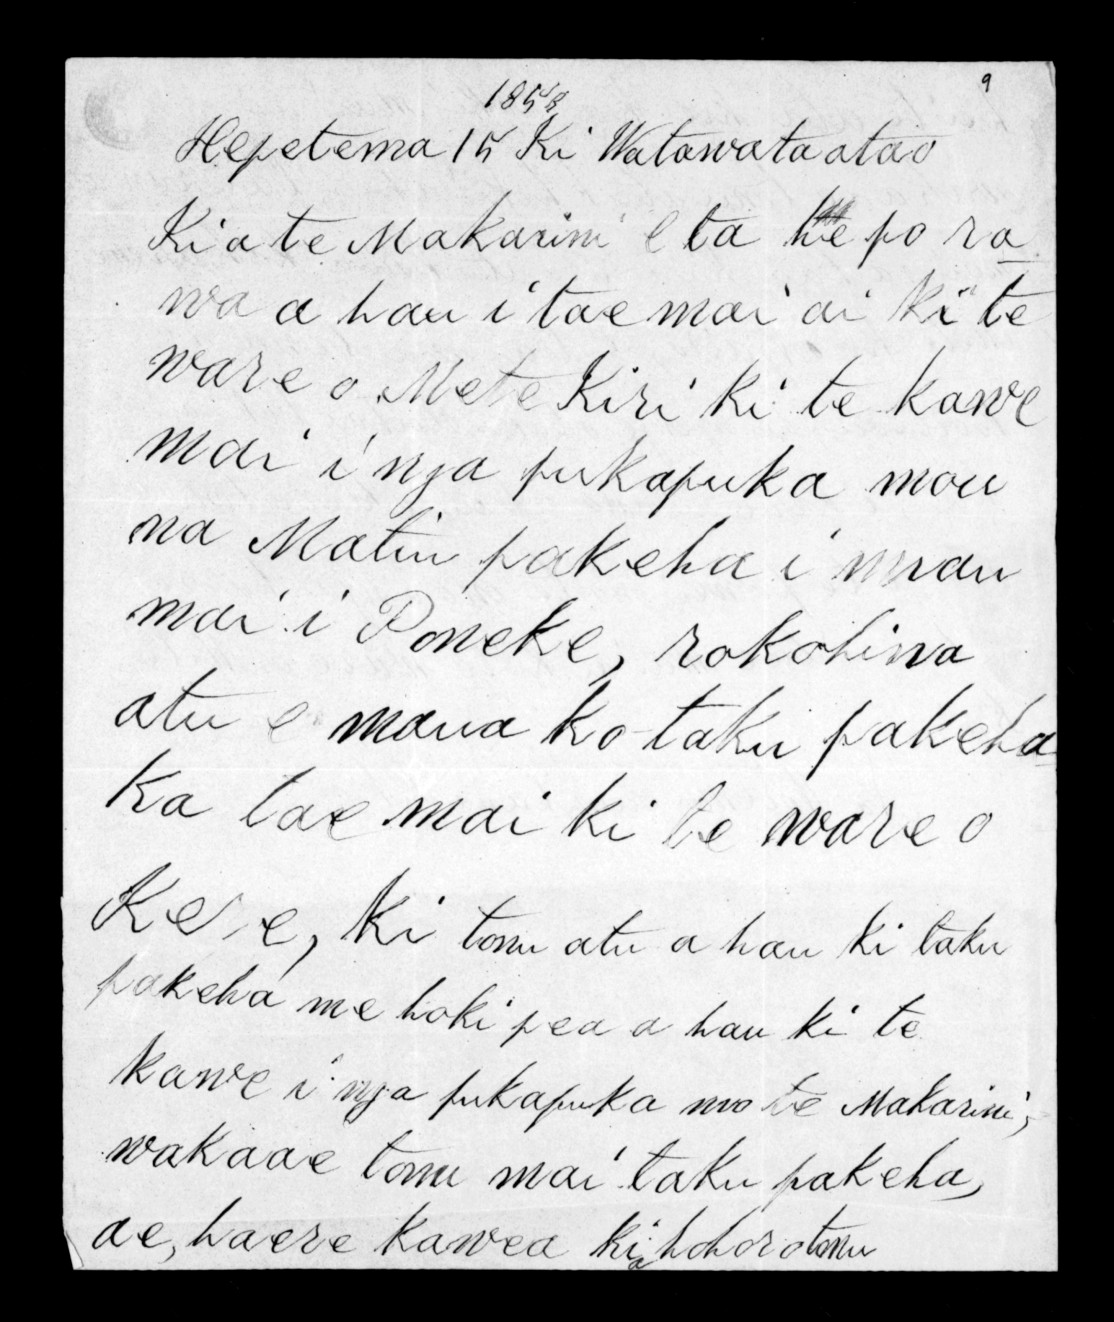 9
185
Hepetema 15 Ki Watawataatao
Kia te Makarini E ta he po ra
wa a hau i tae mai ai ki te
ware o Mete Kiri ki te kawe
mai i nga pukapuka mou
na Matiu pakeha i mau
mai i Poneke, rokohina
atu e maua ko taku pakeha
ka tae mai ki te ware o
Kere, Ki tonu atu a hau ki taku
pakeha me hoki pea a hau ki te
kawe i nga pukapuka mo te Makarini,
wakaae tonu mai taku pakeha,
ae, haere kawea kia hohoro tonu